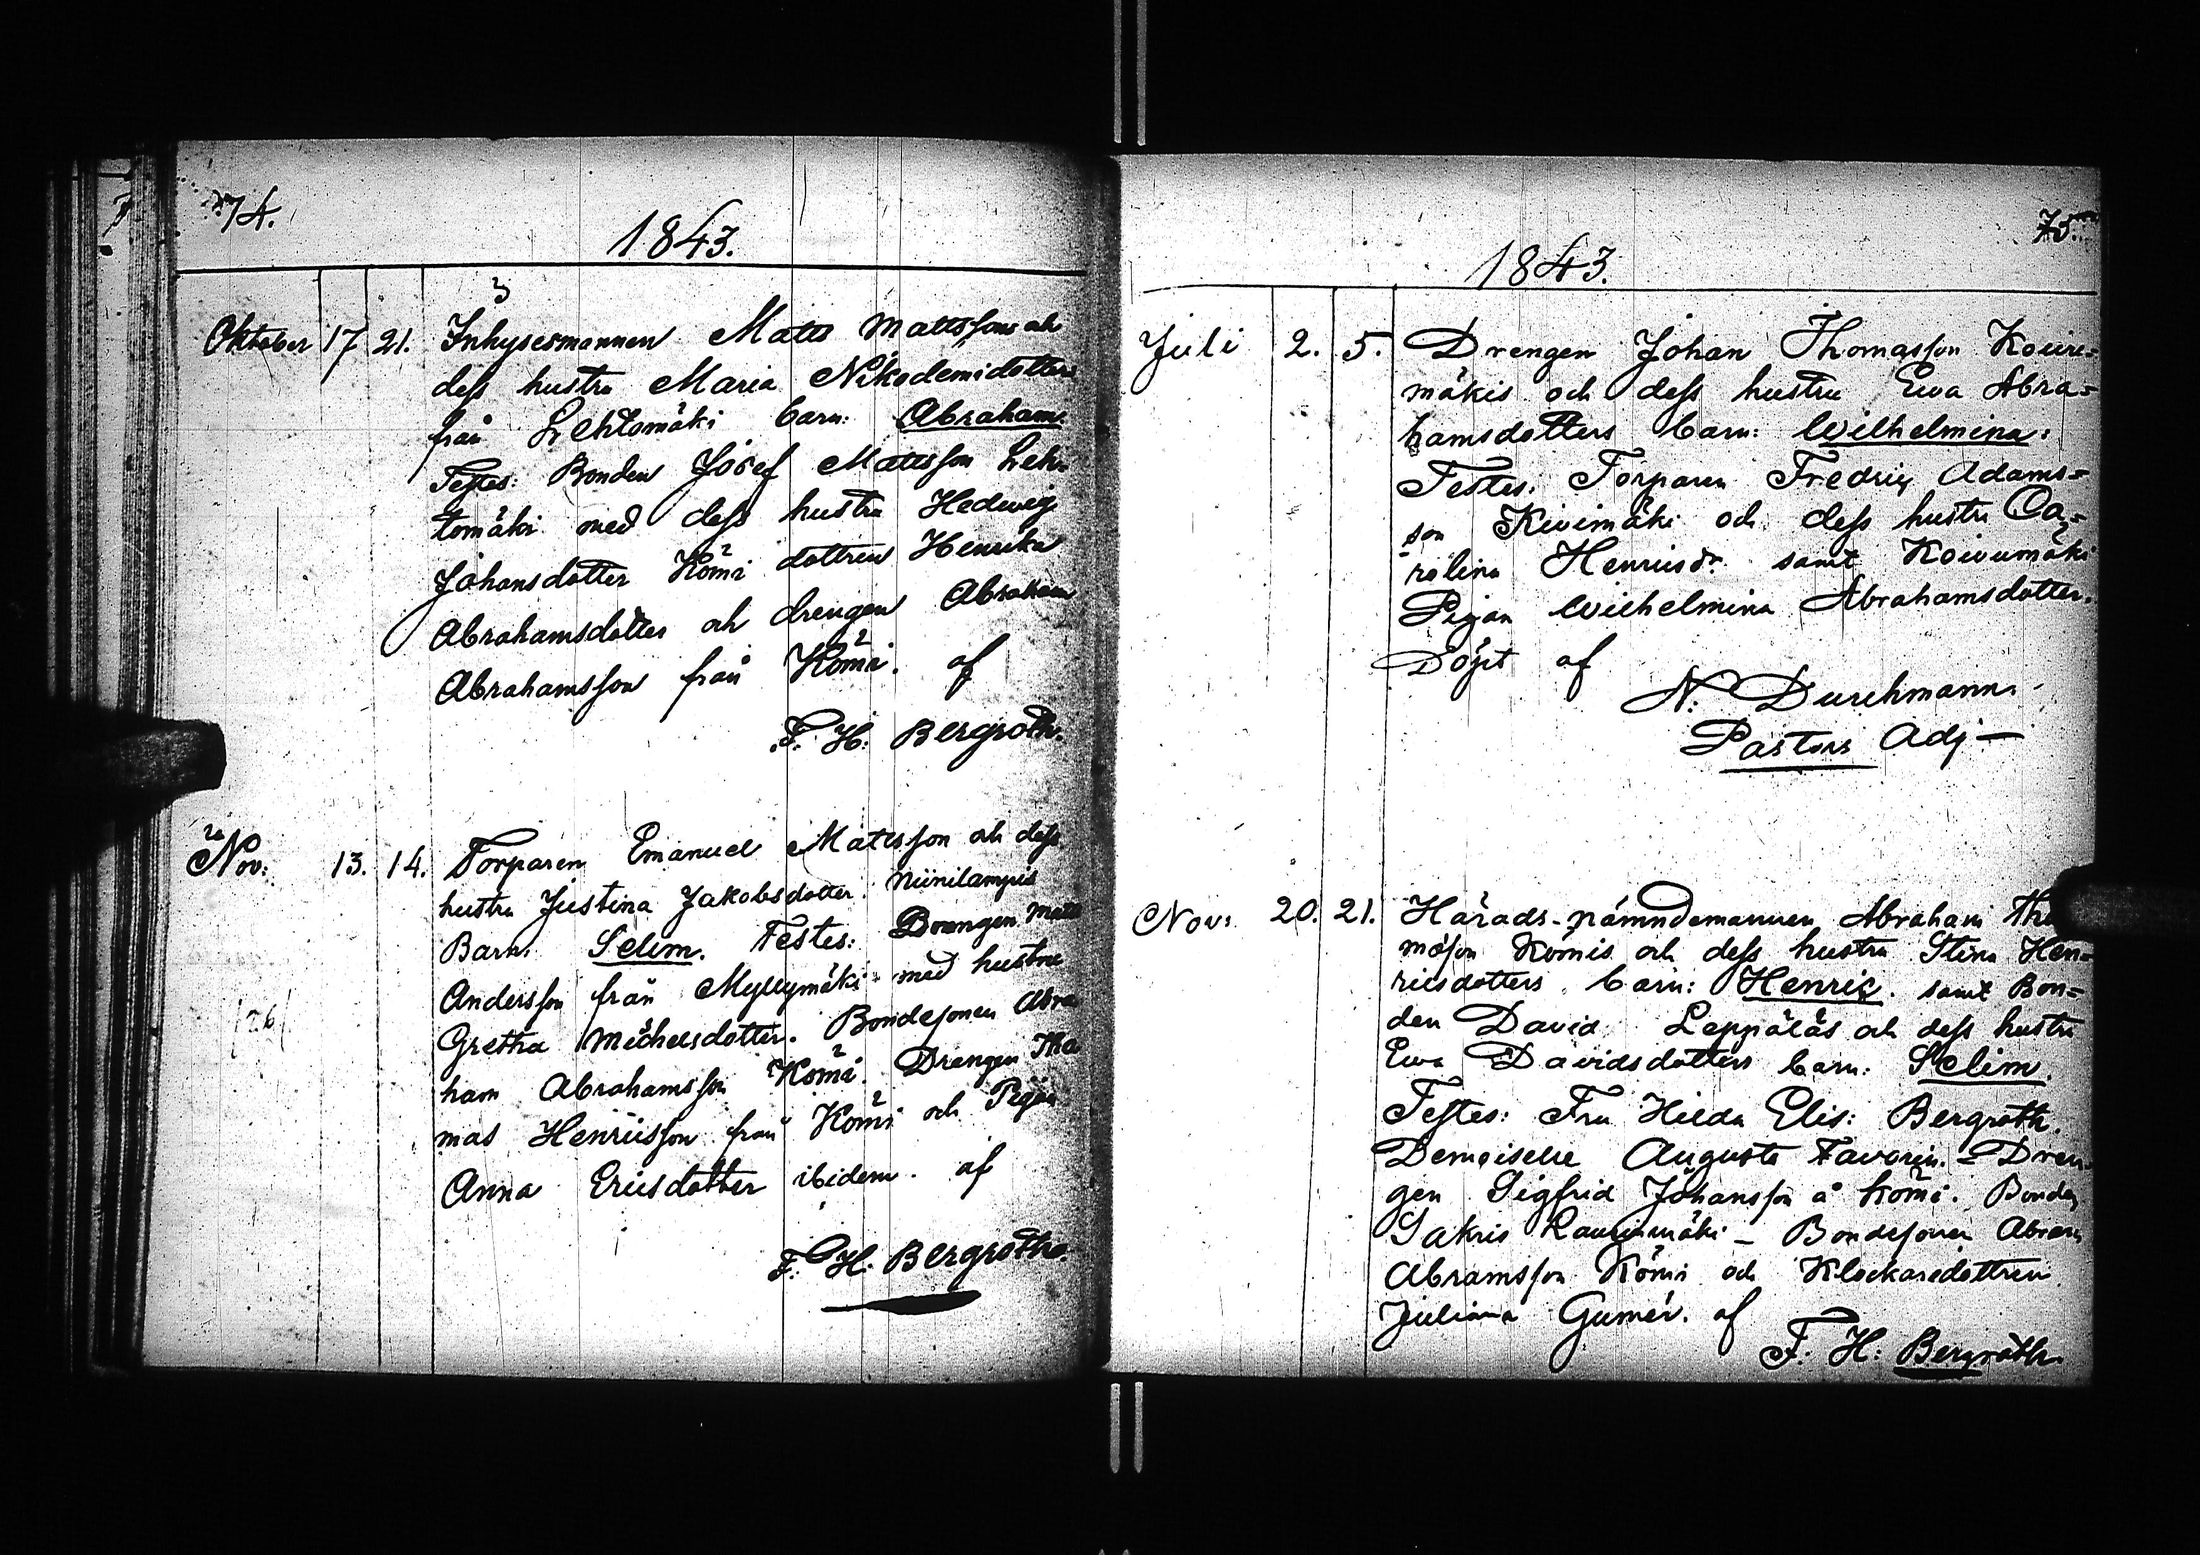 74.
1843.
Oktober 17 21. Inhysesmannen Matts Mattssons och
dess hustru Maria Nikodemidotters
från Lehtomäki barn: Abraham.
Testes: Bonden Josef Mattsson Leh-
tomäki med dess hustru Hedwig
Johansdotter Kömi dottren Henrika
Abrahamsdotter och drengen Abraham
Abrahamsson från Kömi. af
F. H. Bergroth.
Nov: 13. 14. Torparen Emanuel Mattsson och dess
hustru Justina Jakobsdotter Niinilampis
Barn: Selim. Testes: Drengen Matts
Andersson från Myllymäki med hustru
Gretha Michelsdotter. Bondesonen Abra
ham Abrahamsson Kömi. Drengen Tho
mas Henricsson från Kömi och Pigan
Anna Ericsdotter ibidem. af
F. H. Bergroth.
75.
1843.
Juli 2. 5. Drengen Johan Thomasson Koivu=
mäkis och dess hustru Ewa Abra=
hamsdotters barn: Wilhelmina.
Testes: Torparen Fredric Adams=
son Kivimäki och dess hustru Ca=
rolina Henricsdr samt Koivumäki
Pigan Wilhelmina Abrahamsdotter.
Döpt af
N. Durchmann.
Pastors Adj—
Nov: 20. 21. Härads-nämndemannen Abraham Tho
masson Kömis och dess hustru Stina Hen=
ricsdotters barn: Henric. samt Bon=
den David Leppäläs och dess hustru
Ewa Davidsdotters barn: Selim.
Testes: Fru Hilda Elis: Bergroth.
Demoiselle Augusta Favorin. – Dren
gen Sigfrid Johansson å Kömi. Bonden
Sakris – Bondesonen Abram
Abramsson Kömi och Klockaredottren
Juliana Gumér. af
F. H: Bergroth.